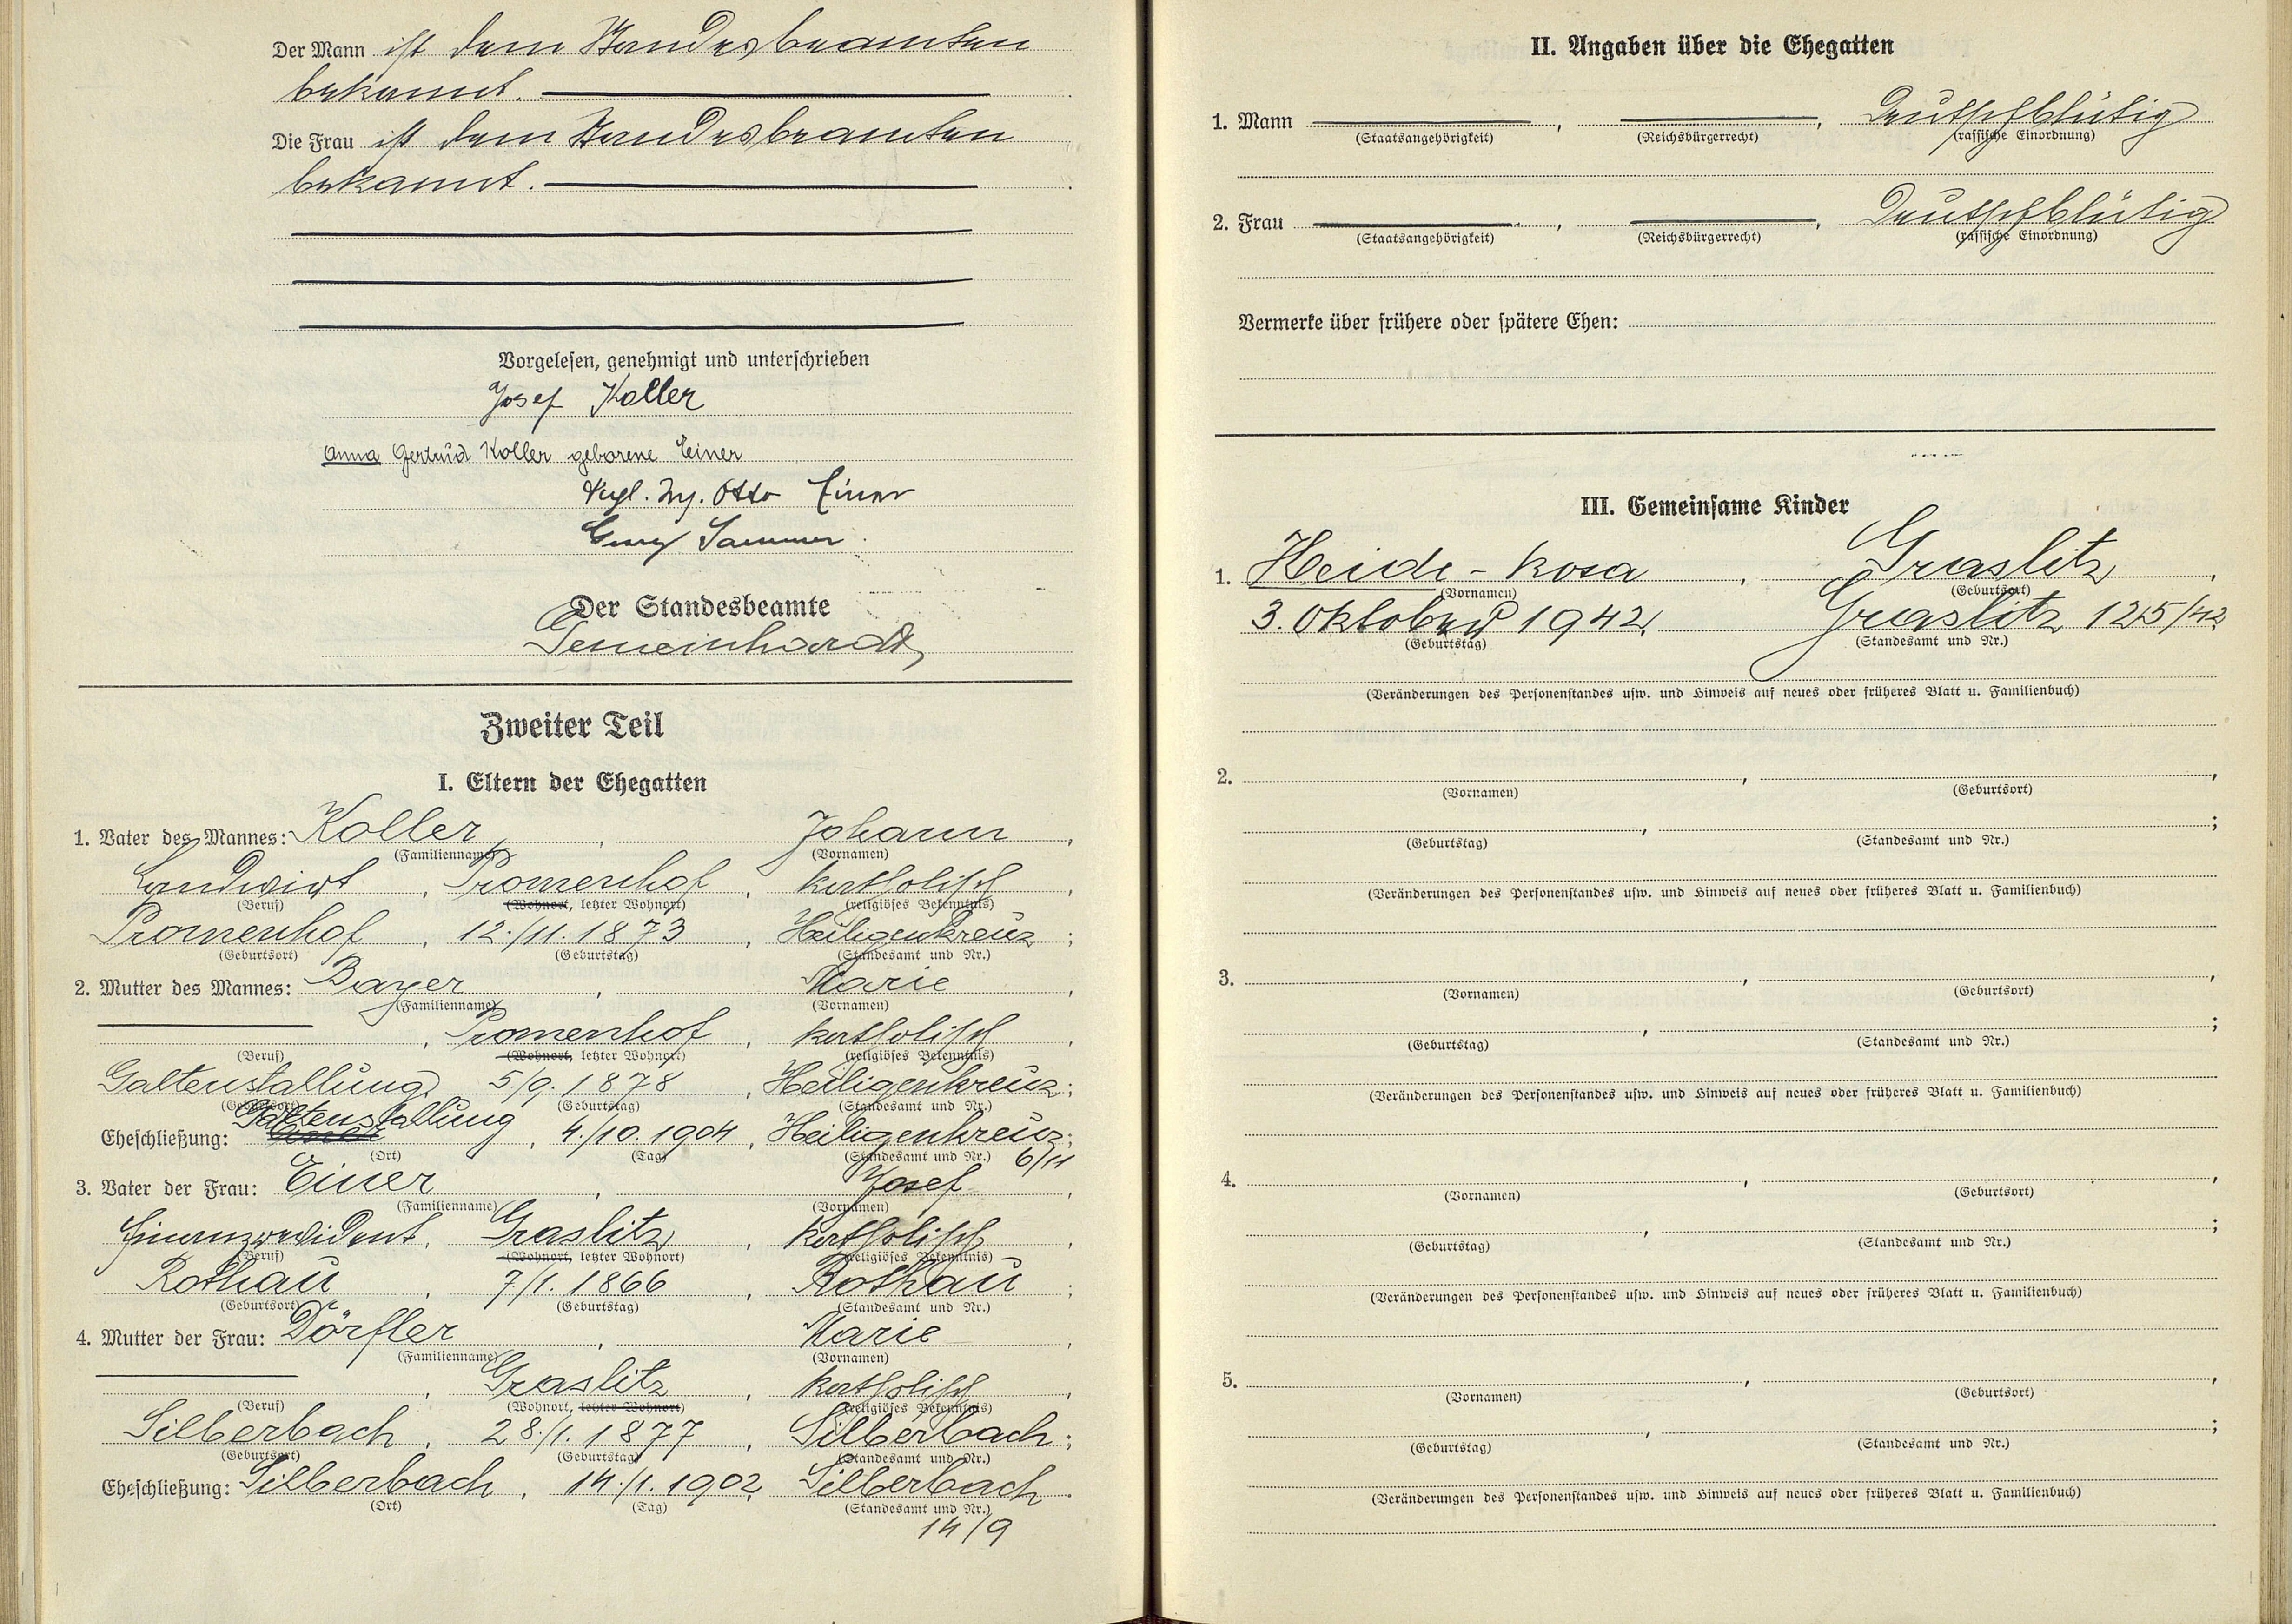 Der Mann ist dem Standesbeamten
bekannt.
Die Frau ist dem Standesbeamten
bekannt.
Vorgelesen, genehmigt und unterschrieben
Josef Koller
Anna Gertrud Koller geborene Einer
Otto Einer
Sammer
Der Standesbeamte
Gemeinhardt
Zweiter Teil
I. Eltern der Ehegatten
1. Vater des Mannes: Koller, Johann,
(Familienname) (Vornamen)
Landwirt, Promenhof, katholisch,
(Beruf) (Wohnort, letzter Wohnort) (religiöses Bekenntnis)
Promenhof, 12./11. 1873, Heiligenkreuz;
(Geburtsort) (Geburtstag) (Standesamt und Nr.)
2. Mutter des Mannes: Bayer, Marie,
(Familienname) (Vornamen)
, Promenhof, katholisch,
(Beruf) (Wohnort, letzter Wohnort) (religiöses Bekenntnis)
Galtenstallung, 5./9. 1878, Heiligenkreuz;
(Geburtsort) (Geburtstag) (Standesamt und Nr.)
Eheschließung: Galtenstallung, 4./10. 1904, Heiligenkreuz;
(Ort) (Tag) (Standesamt und Nr.) 6/11
3. Vater der Frau: Einer, Josef,
(Familienname) (Vornamen)
Finanzrevident, Graslitz, katholisch,
(Beruf) (Wohnort, letzter Wohnort) (religiöses Bekenntnis)
Rothau, 7/1. 1866, Rothau;
(Geburtsort) (Geburtstag) (Standesamt und Nr.)
4. Mutter der Frau: Dörfler, Marie,
(Familienname) (Vornamen)
, Graslitz, katholisch,
(Beruf) (Wohnort, letzter Wohnort) (religiöses Bekenntnis)
Silberbach, 28./1. 1877, Silberbach;
(Geburtsort) (Geburtstag) (Standesamt und Nr.)
Eheschließung: Silberbach, 14./1. 1902, Silberbach.
(Ort) (Tag) (Standesamt und Nr.)
14/9
II. Angaben über die Ehegatten
1. Mann , , Deutschblütig
(Staatsangehörigkeit) (Reichsbürgerrecht) (rassische Einordnung)
2. Frau , , Deutschblütig
(Staatsangehörigkeit) (Reichsbürgerrecht) (rassische Einordnung)
Vermerke über frühere oder spätere Ehen:
III. Gemeinsame Kinder
1. Heide-Rosa, Graslitz,
(Vornamen) (Geburtsort)
3. Oktober 1942, Graslitz 125/42
(Geburtstag) (Standesamt und Nr.)
(Veränderungen des Personenstandes usw. und Hinweis auf neues oder früheres Blatt u. Familienbuch)
2. , ,
(Vornamen) (Geburtsort)
, ;
(Geburtstag) (Standesamt und Nr.)
(Veränderungen des Personenstandes usw. und Hinweis auf neues oder früheres Blatt u. Familienbuch)
3. , ,
(Vornamen) (Geburtsort)
, ;
(Geburtstag) (Standesamt und Nr.)
(Veränderungen des Personenstandes usw. und Hinweis auf neues oder früheres Blatt u. Familienbuch)
4. , ,
(Vornamen) (Geburtsort)
, ;
(Geburtstag) (Standesamt und Nr.)
(Veränderungen des Personenstandes usw. und Hinweis auf neues oder früheres Blatt u. Familienbuch)
5. , ,
(Vornamen) (Geburtsort)
, ;
(Geburtstag) (Standesamt und Nr.)
(Veränderungen des Personenstandes usw. und Hinweis auf neues oder früheres Blatt u. Familienbuch)